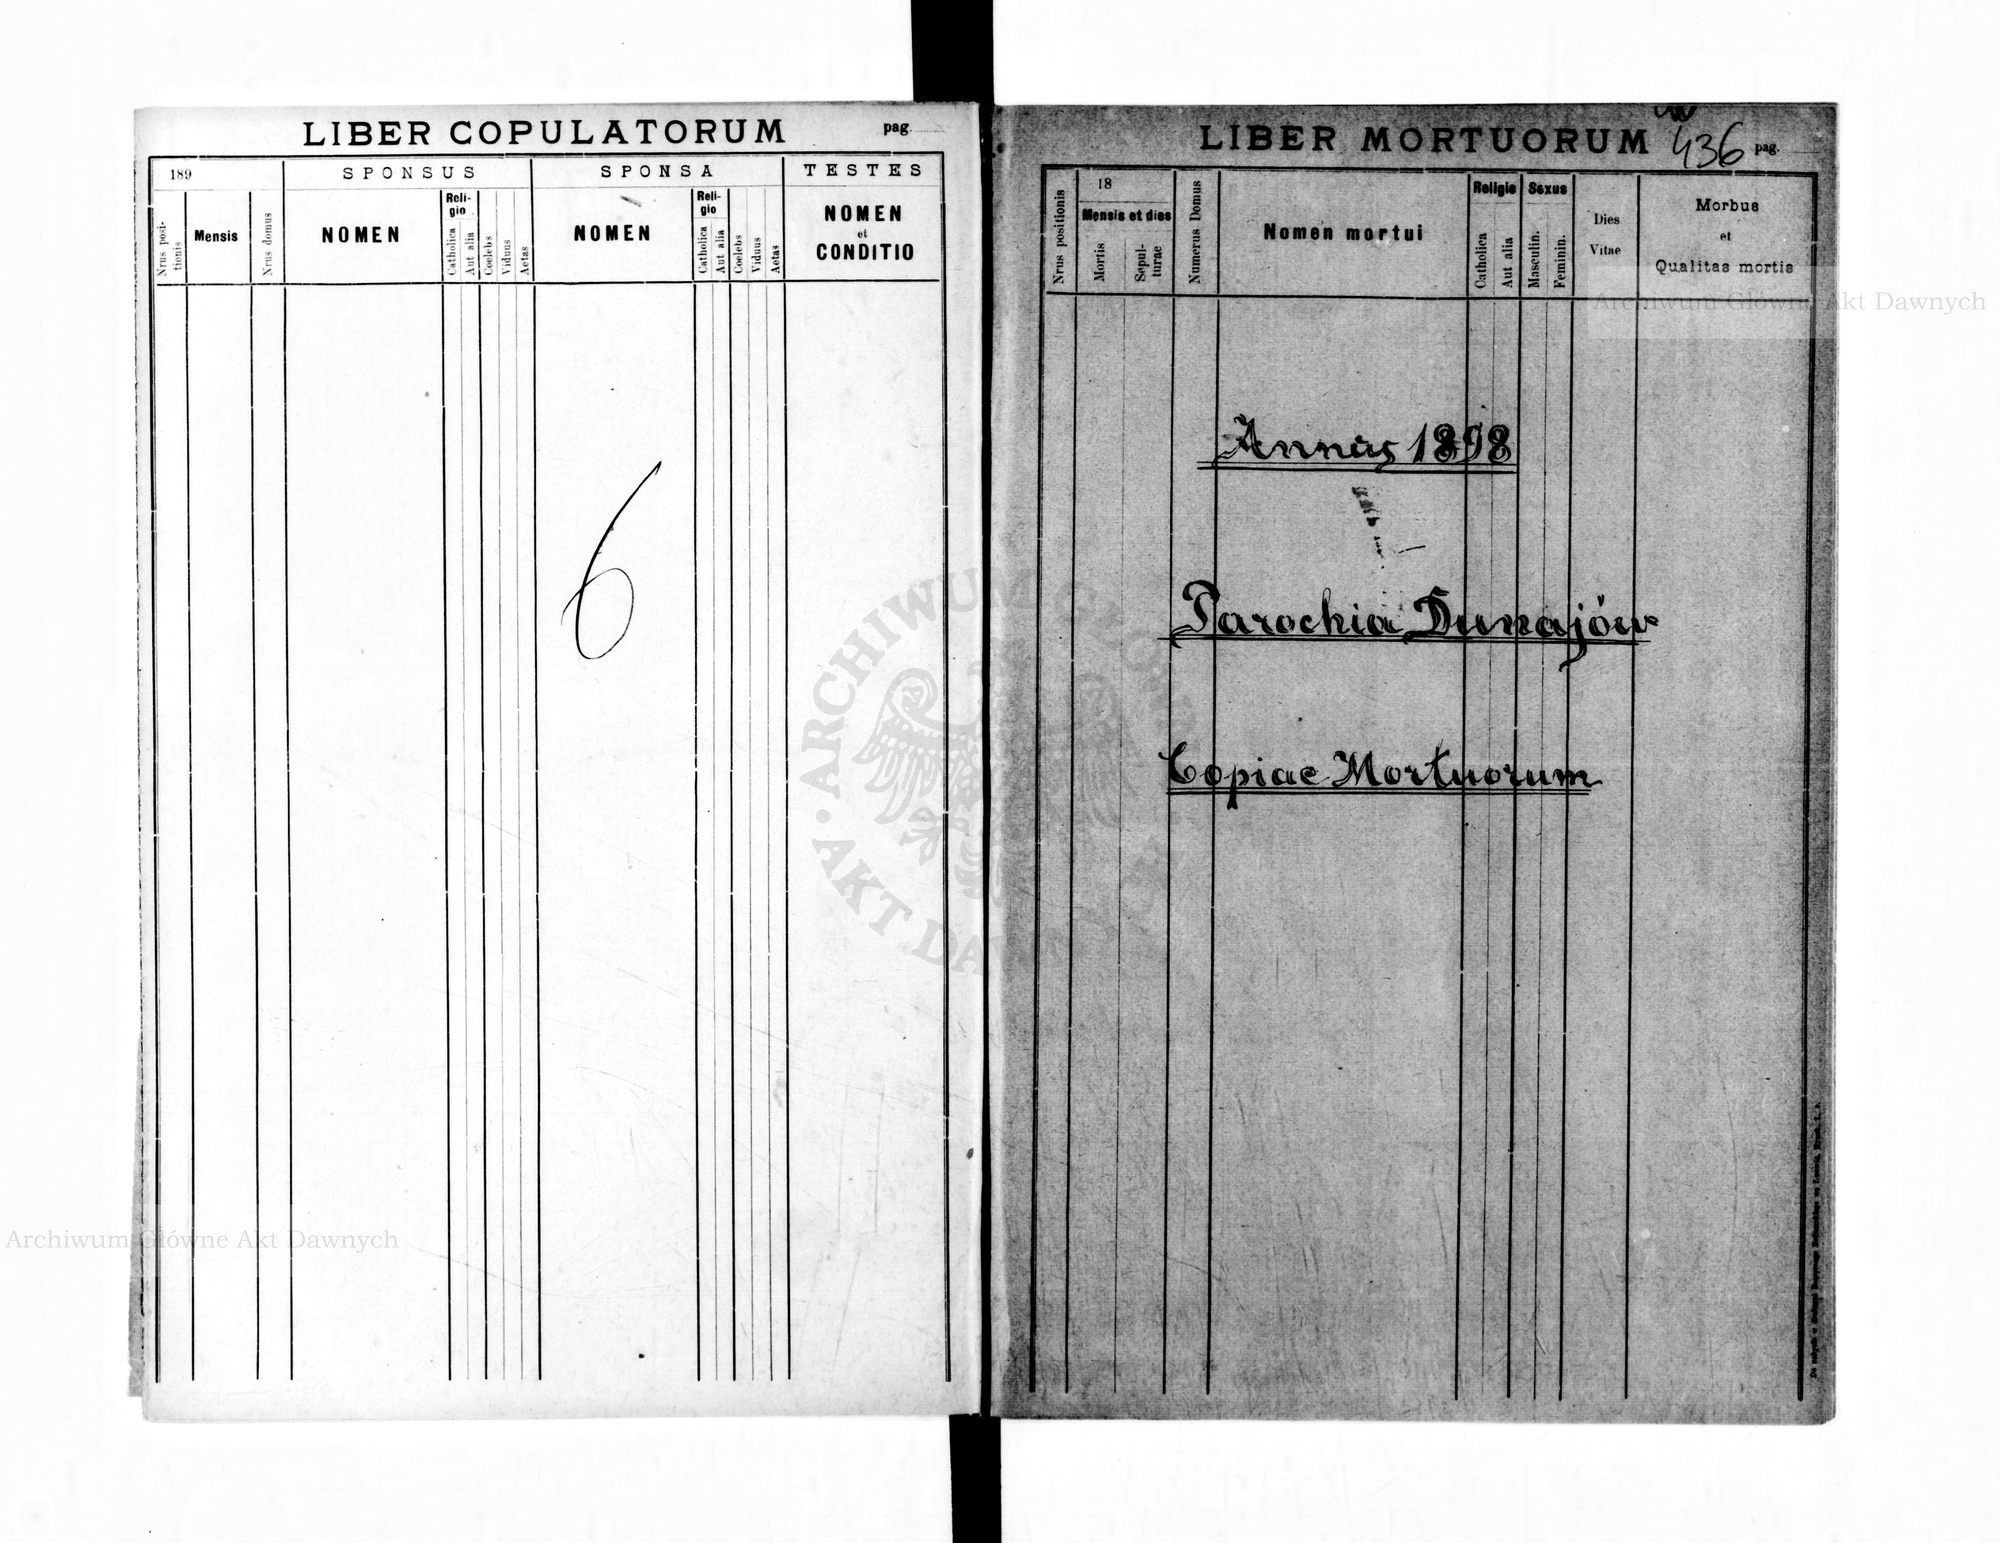 LIBER COPULATORUM pag.
189 SPONSUS SPONSA TESTES
Nrus positionis Mensis Nrus domus NOMEN Religio Catholica Aut alia Coelebs Viduus Aetas NOMEN Religio Catholica Aut alia Coelebs Viduus Aetas NOMEN et CONDITIO
6
LIBER MORTUORUM 436 pag.
Nrus positionis 18 Mensis et dies Mortis Sepulturae Numerus Domus Nomen mortui Religio Catholica Aut alia Sexus Masculin. Feminin. Dies Vitae Morbus et Qualitas mortis
Annus 1898
Parochia Dunajów
Copiae Mortuorum
Archiwum Główne Akt Dawnych
Archiwum Główne Akt Dawnych
ARCHIWUM GŁÓWNE AKT DAWNYCH